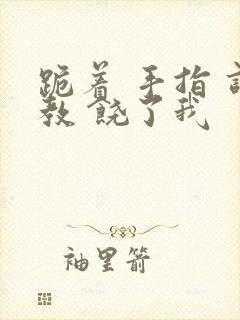 跪着 手指
教 饶了我
袖里箭